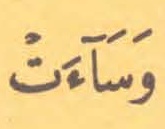 وَسَآءَتْ